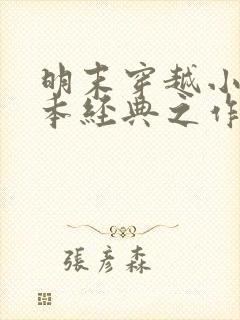 明末穿越小
本经典之作
張彦森